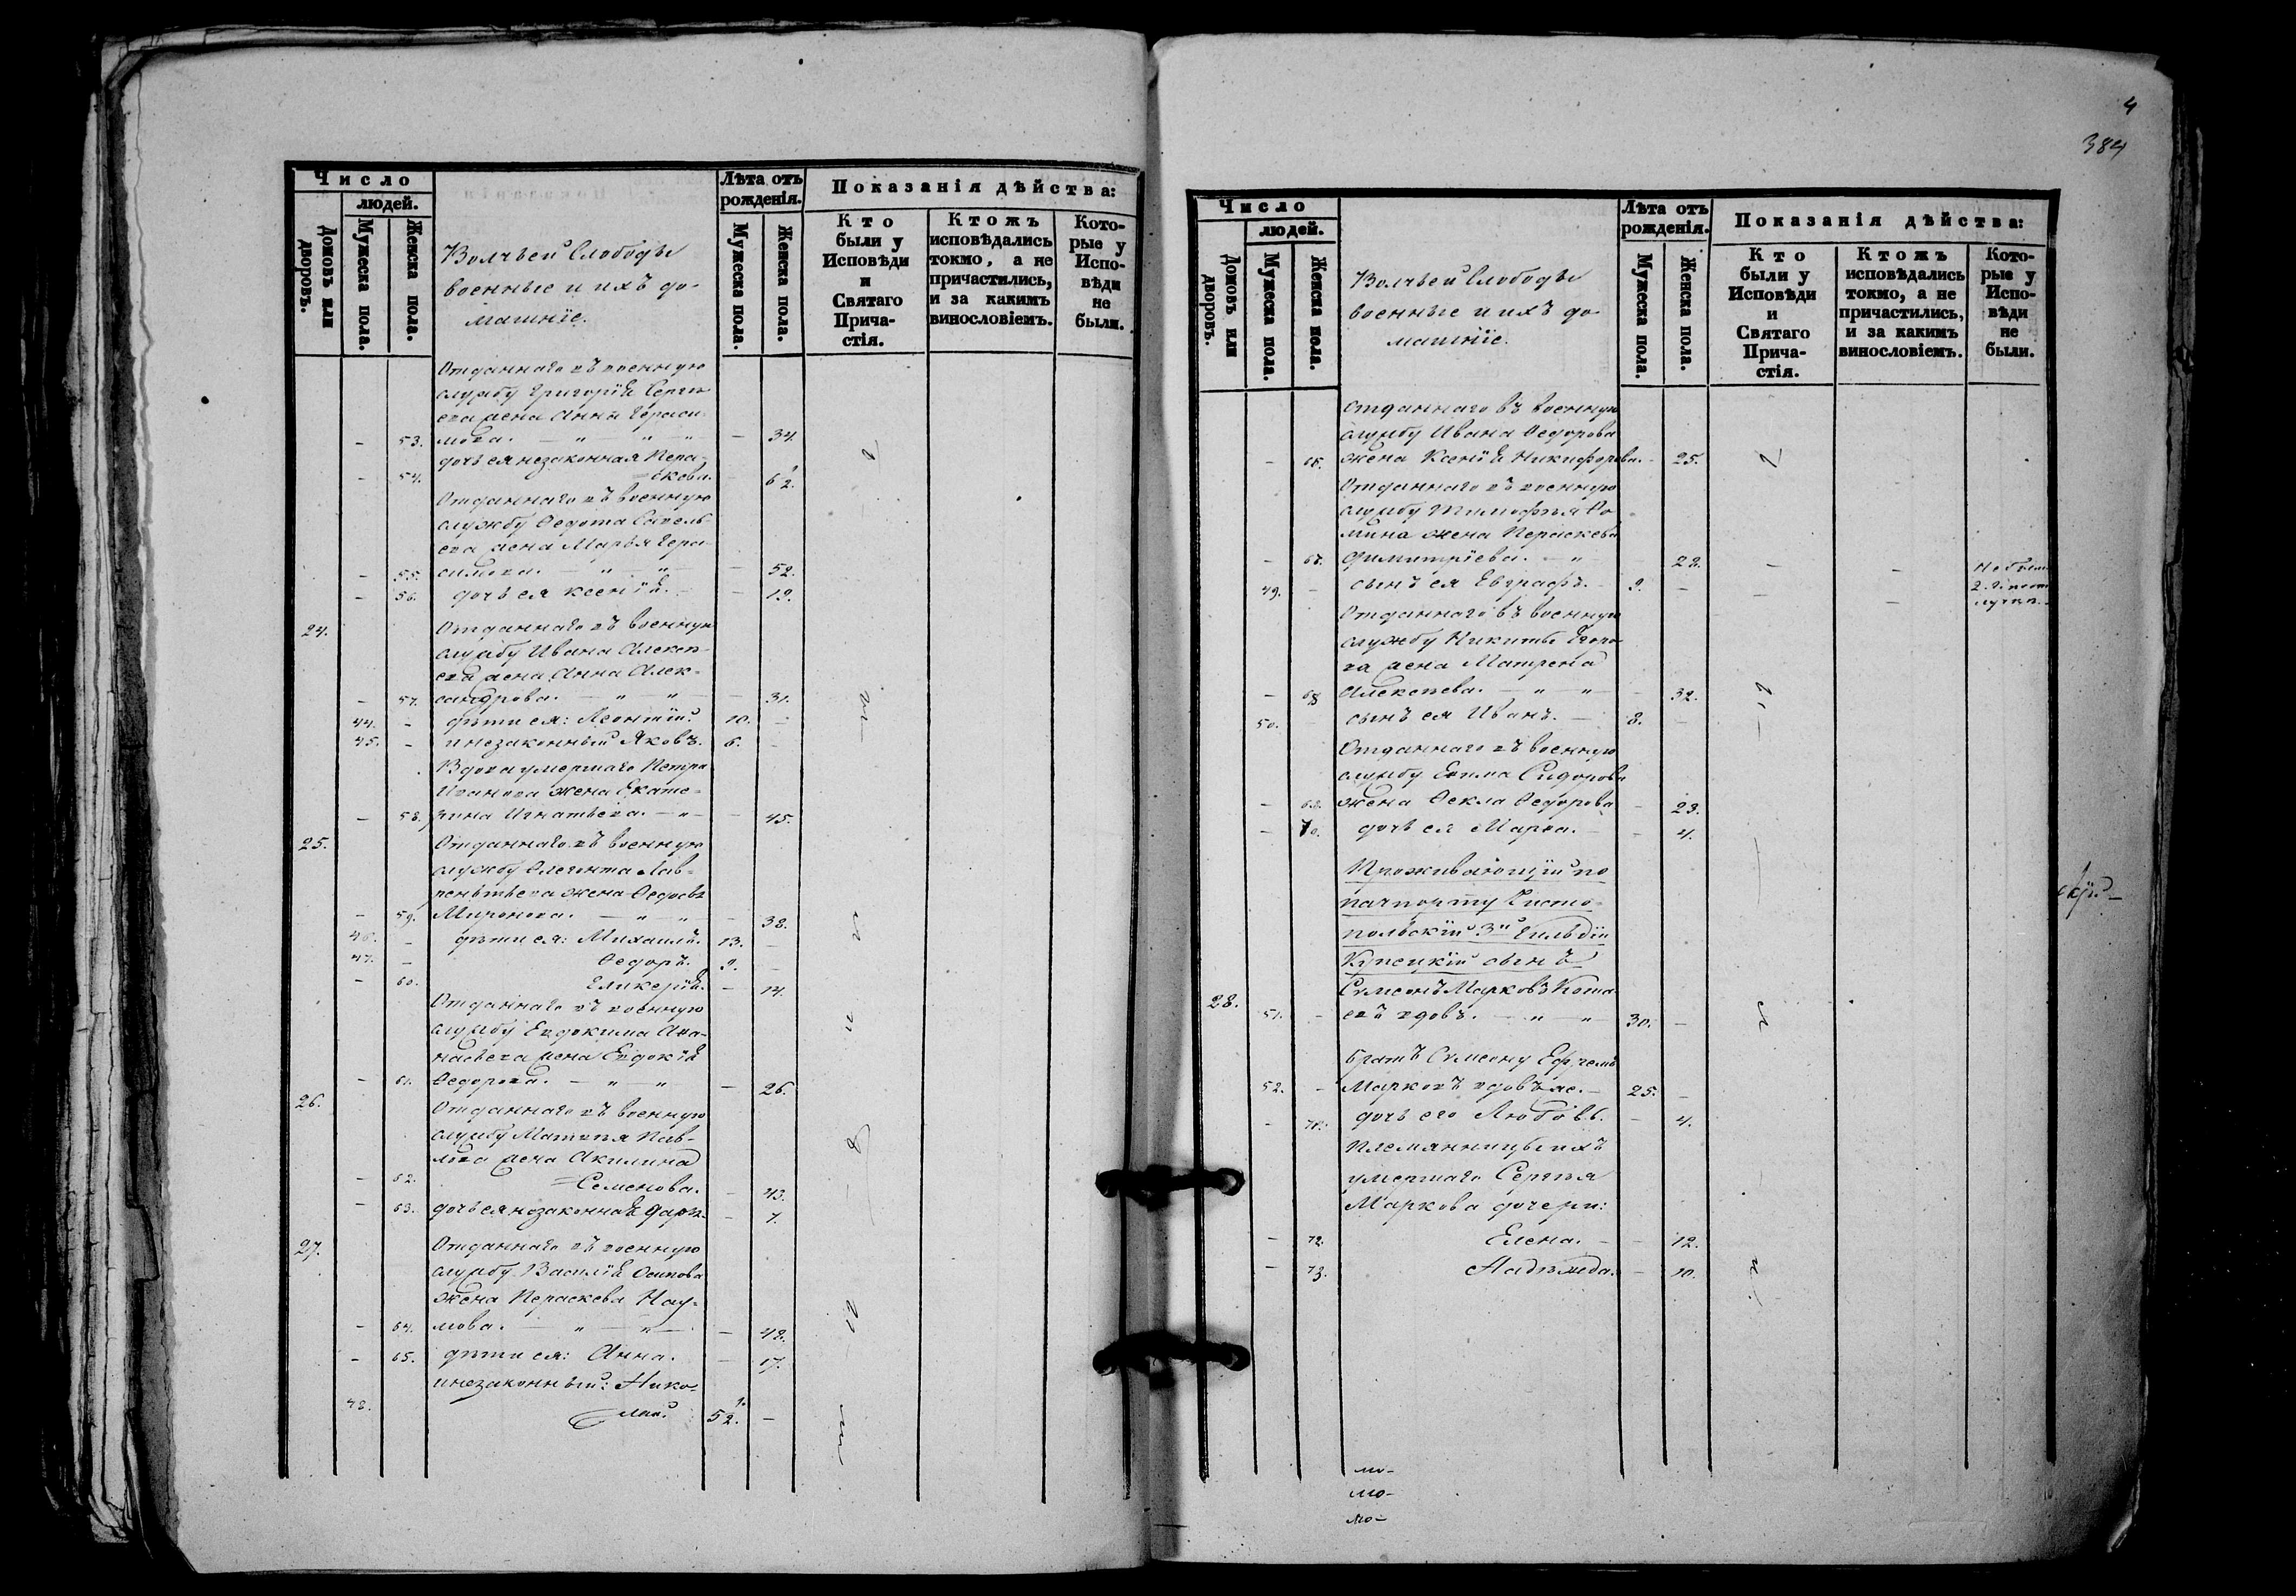 Число
людей.
Домовъ или дворовъ.
Мужеска пола.
Женска пола.
Волчьей Слободы
военные и ихъ до-
машніе.
Лѣта отъ
рожденія.
Мужеска пола.
Женска пола.
Показанія дѣйства:
Кто
были у
Исповѣди
и
Святаго
Прича-
стія.
Ктожъ
исповѣдались
токмо, а не
причастились,
и за какимъ
винословіемъ.
Кото-
рые у
Испо-
вѣди
не
были.
Отданнаго въ военную
службу Григорія Серги-
ева жена Анна Гераси-
- 53. мова. — " — " — - 34.
дочь ея незаконная Пера-
- 54. =скева. - 6½.
Отданнаго въ военную
службу Федота Савель-
ева жена Марья Гера-
- 55. симова. — " — " - 52.
- 56. дочь ея Ксенія. - - 19.
24. Отданнаго въ военную
службу Ивана Алексѣ-
ева жена Анна Алек-
- 57. сандрова. — " — " - 31.
44. - дѣти ея: Леонтій. 10. -
45. - и незаконный Яковъ. 6. -
Вдова умершаго Петра
Иванова жена Екате-
- 58. рина Игнатьева. — " - 45.
25. Отданнаго въ военную
службу Лав-
рентьева жена Федосья
- 59. Миронова. — " " - 38.
46. - дѣти ея: Михаилъ. 13. -
47. - Ѳедоръ. 9. -
- 60. Гликерія. - 14.
Отданнаго въ военную
службу Евдокима Аѳа-
насьева жена Евдокія
- 61. Ѳедорова. — " — " - 26.
26. Отданнаго въ военную
службу Матвѣя Пав-
лова жена Акилина
- 62. =Семенова. - 43.
- 63. дочь ея незаконная Дарья - 7.
27. Отданнаго въ военную
службу Василія Осипова
жена Пераскева Нау-
- 64. мова. — " — " - 42.
- 65. дѣти ея: Анна. - 17.
и незаконный: Нико-
48. лай. 5½. -
4
384
Число
людей.
Домовъ или дворовъ.
Мужеска пола.
Женска пола.
Волчьей Слободы
военные и ихъ до-
машніе.
Лѣта отъ
рожденія.
Мужеска пола.
Женска пола.
Показанія дѣйства:
Кто
были у
Исповѣди
и
Святаго
Прича-
стія.
Ктожъ
исповѣдались
токмо, а не
причастились,
и за какимъ
винословіемъ.
Кото-
рые у
Испо-
вѣди
не
были.
Отданнаго въ военную
службу Ивана Ѳедорова
- 66. жена Ксенія Никифорова. - 25.
Отданнаго въ военную
службу Тимофея Ѳо-
мина жена Пераскева
- 67. Димитріева. — " - 22. - -
49. - сынъ ея Евграфъ. 2. - - -
Отданнаго въ военную
службу Никиты Егоро-
ва жена Матрена
- 68 Алексѣева. — " " - 32.
50. - сынъ ея Иванъ. — 8. -
Отданнаго въ военную
службу Сидорова
- 69. жена Ѳекла Ѳедорова - 23.
- 70. дочь ея Марѳа. - - 4.
Проживающій по
пачпорту Чисто-
польскій 3й Гильдіи
Купеческій сынъ
28. Сѵмеонъ Марковъ
51. - вдовъ. — " — " 30. -
братъ Сѵмеону Ефремъ
52. - Марковъ вдовъ же. — 25. -
- 71. дочь его Любовь. - 4.
Племянницы ихъ
умершаго Сергѣя
Маркова дочери:
- 72. Елена. - - 12.
- 73. Надежда. - 10.
мо-
мо-
мо-